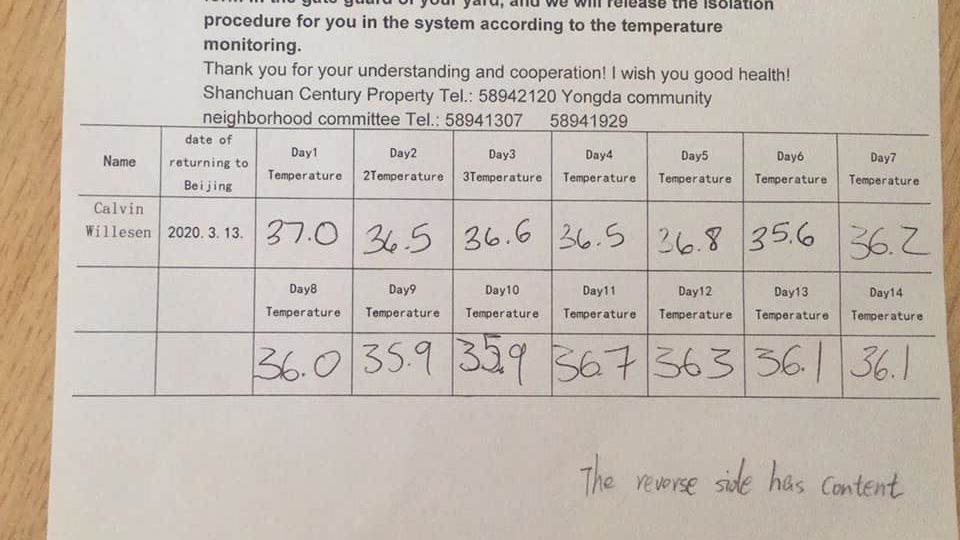 form in the gate guard of your yard, and we will release the isolation
procedure for you in the system according to the temperature
monitoring.
Thank you for your understanding and cooperation! I wish you good health!
Shanchuan Century Property Tel.: 58942120 Yongda community
neighborhood committee Tel.: 58941307 58941929
Name date of returning to Beijing Day1 Temperature Day2 2Temperature Day3 3Temperature Day4 Temperature Day5 Temperature Day6 Temperature Day7 Temperature
Calvin Willesen 2020. 3. 13. 37.0 36.5 36.6 36.5 36.8 35.6 36.2
Day8 Temperature Day9 Temperature Day10 Temperature Day11 Temperature Day12 Temperature Day13 Temperature Day14 Temperature
36.0 35.9 35.9 36.7 363 36.1 36.1
The reverse side has content